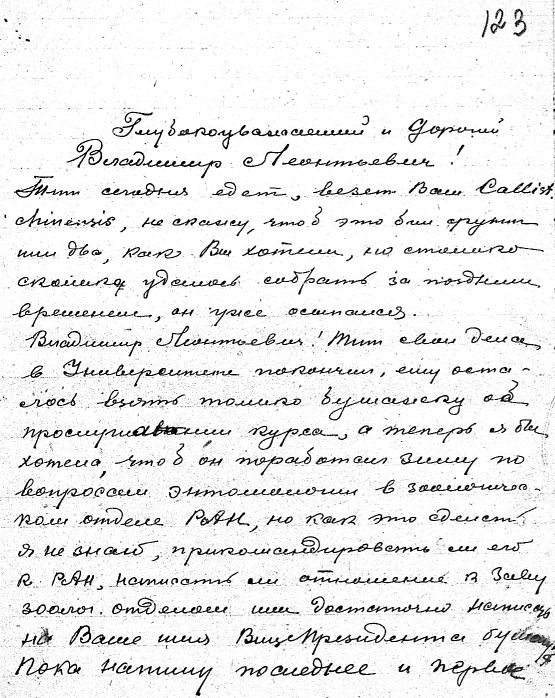 123
Глубокоуважаемый и Дорогой
Владимир Леонтьевич!
Тит сегодня едет, везет Вам Callist.
chinensis, не скажу, чтоб это был фунт
или два, как Вы хотели, но столько
сколько удалось собрать за поздним
временем, он уже осыпался.
Владимир Леонтьевич! Тит свои дела
в Университете покончил, ему оста-
лось взять только бумажку об
прослушании курса, а теперь я бы
хотела, чтоб он поработал зиму по
вопросам энтомологии в зоологичес-
ком отделе РАН, но как это сделать
я не знаю, прикомандировать ли его
к РАН, написать ли отношение к Заву
зоолог. отделом или достаточно написать
на Ваше имя ВицеПрезидента бумагу
Пока напишу последнее и первое